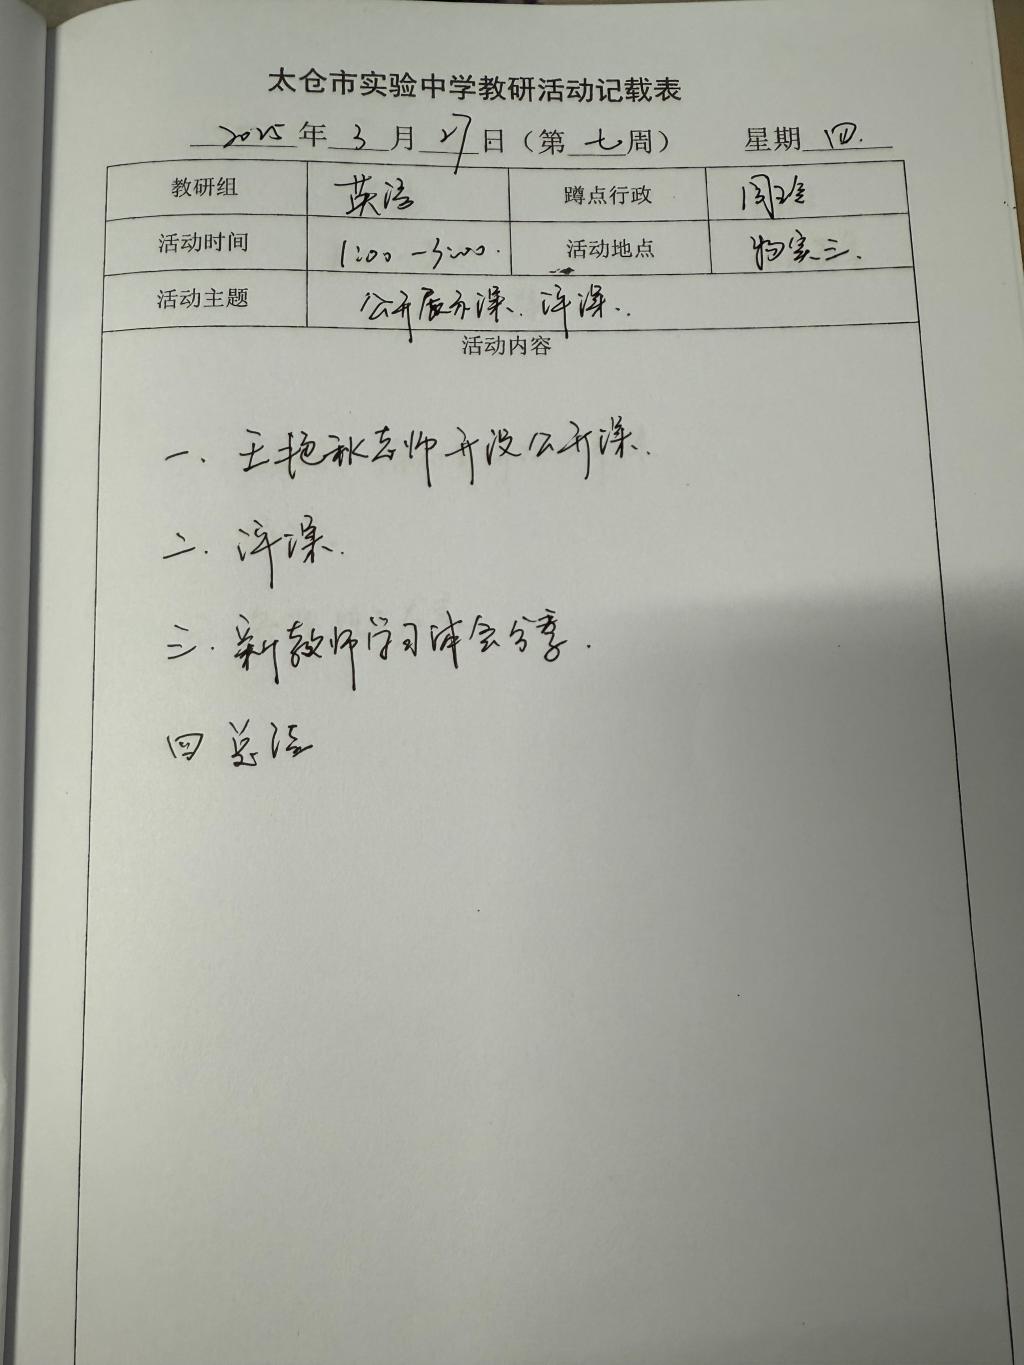 太仓市实验中学教研活动记载表
2025年3月27日（第七周） 星期四.
教研组 英语 蹲点行政 周玲
活动时间 1:00-3:00. 活动地点 物实三.
活动主题 公开展示课、评课.
活动内容
一. 王艳秋老师开设公开课.
二. 评课.
三. 新教师学习体会分享.
四 总结